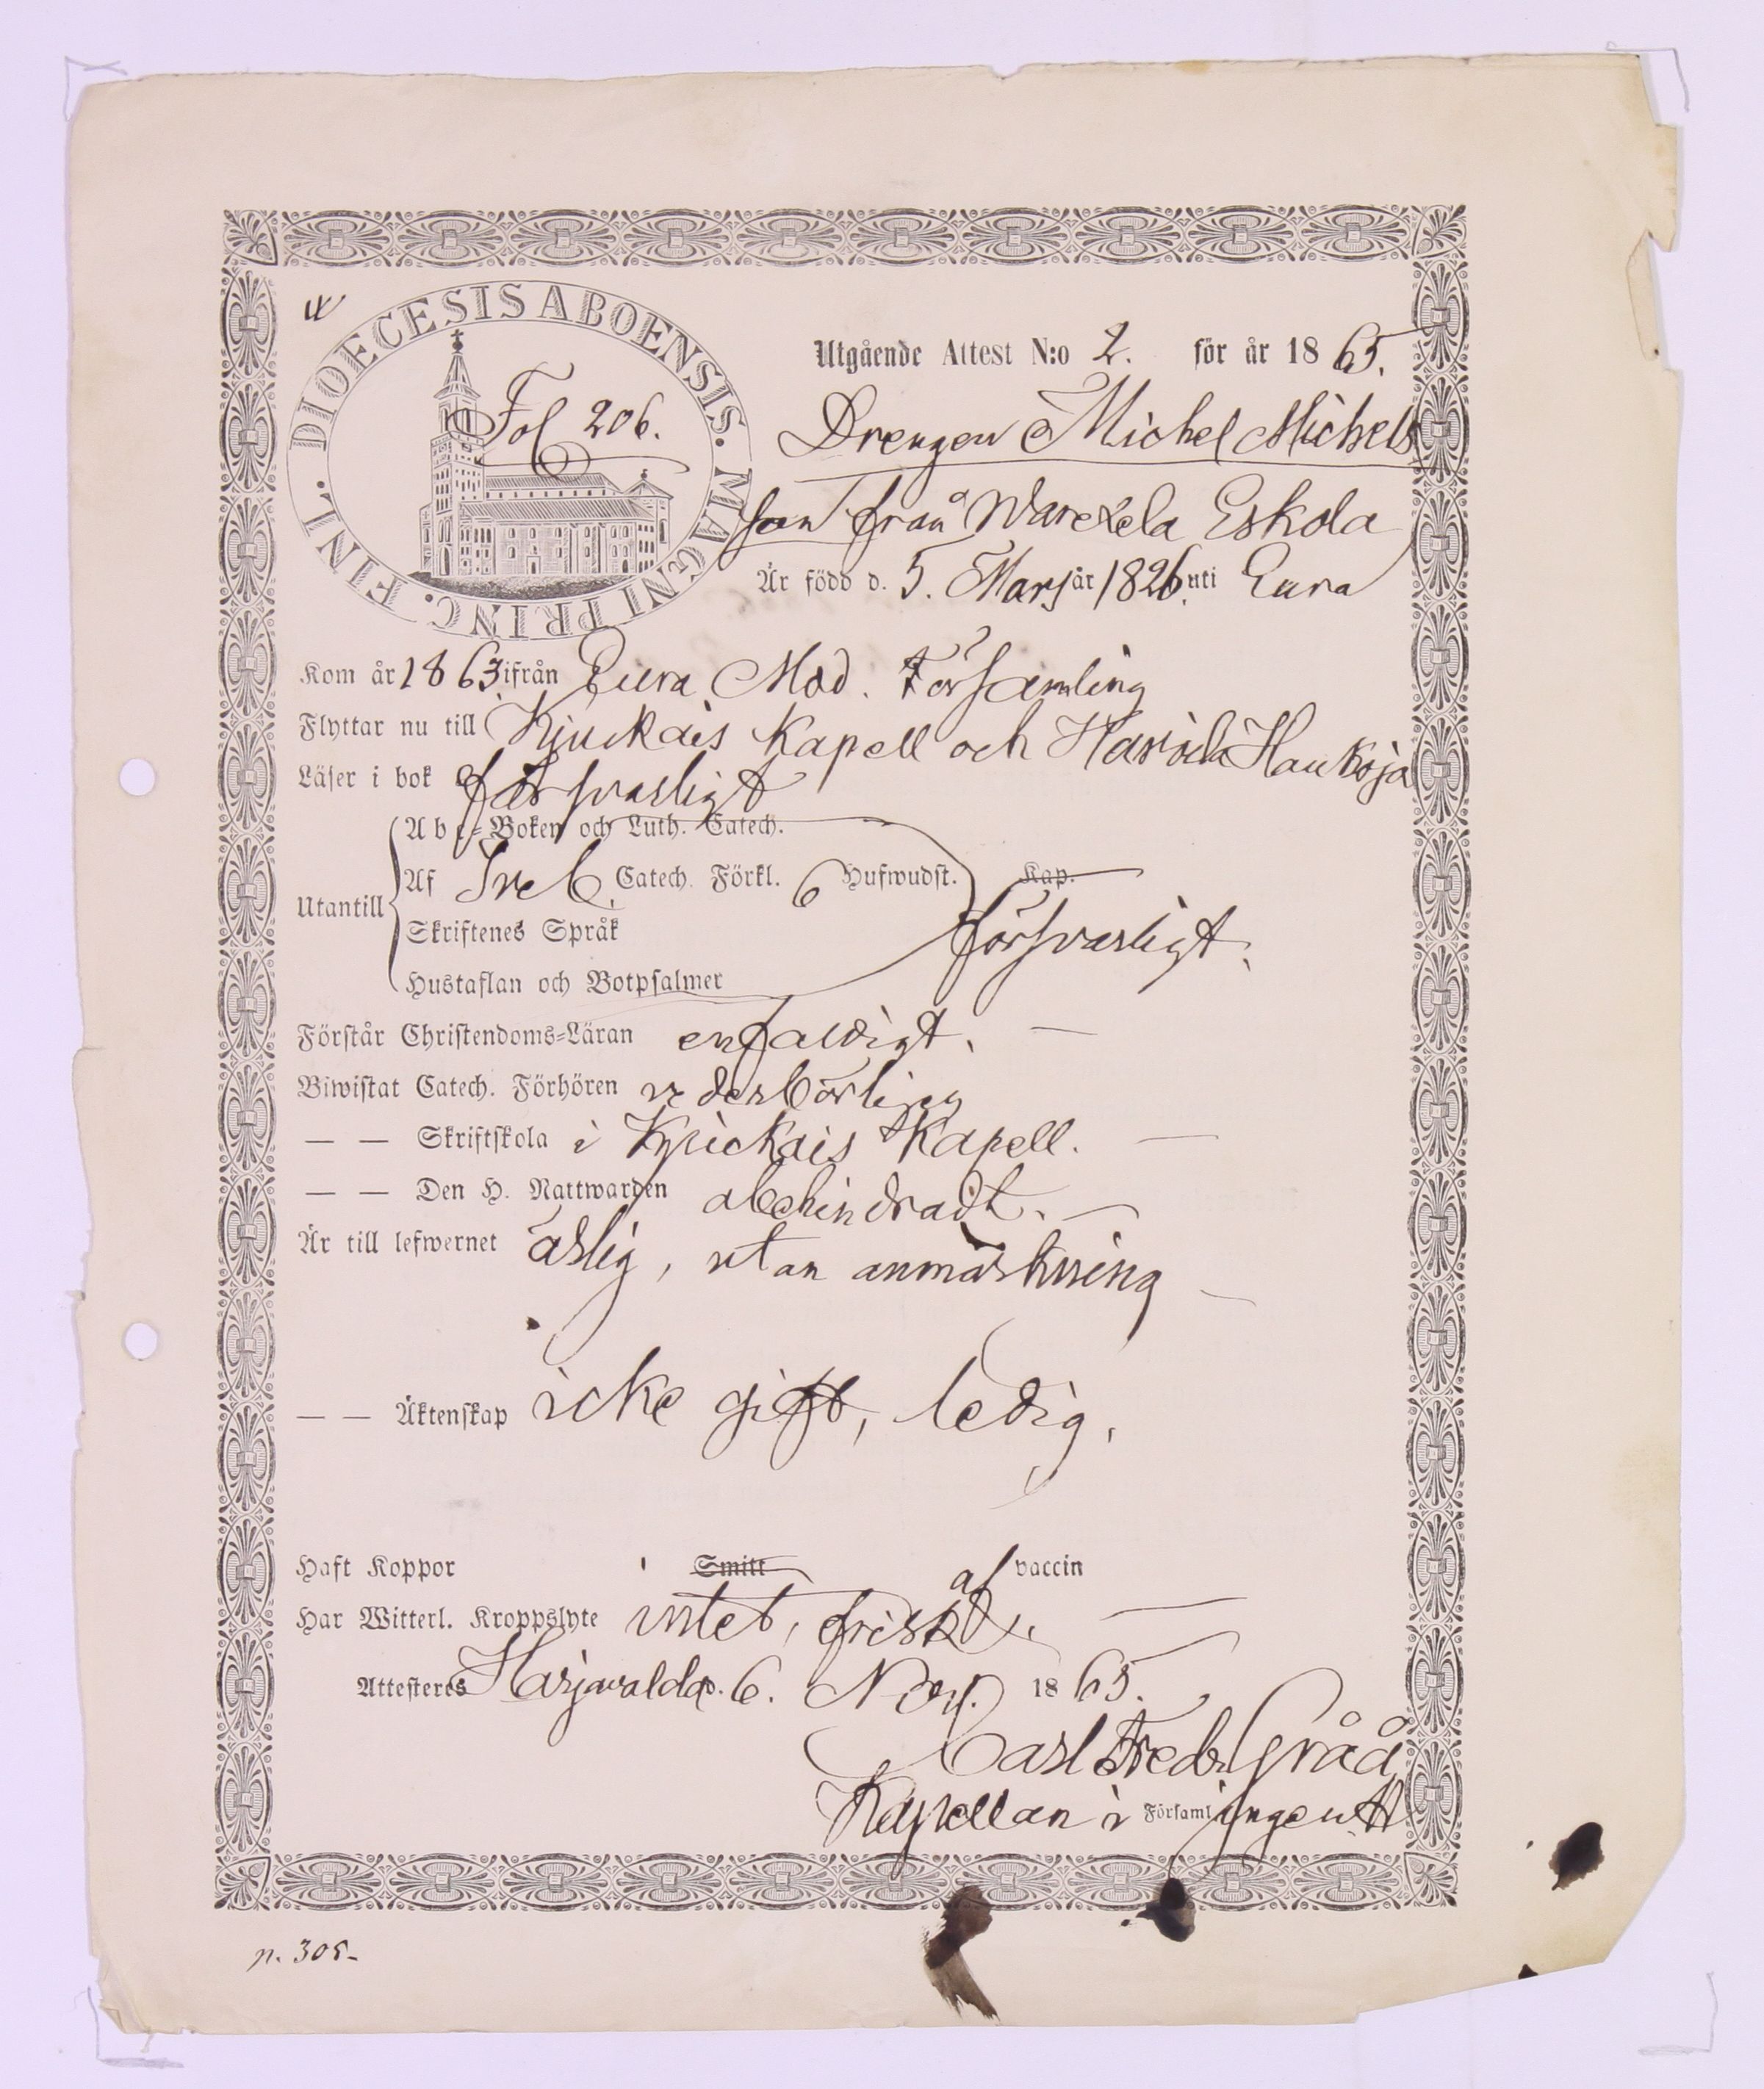 DIOECESIS ABOENSIS. MAGNI PRINC. FINL.
Fol 206.
Utgående Attest N:o 2. för år 1865.
Drengen Michel Michels
son från Warckela Eskola
Är född d. 5. Mars år 1826. uti Eura
Kom år 1863 ifrån Eura Mod. Församling
Flyttar nu till Kjuckais Kapell och Harola Haukoja
Läser i bok försvarligt
Abc-Boken och Luth. Catech.
Utantill
Af Sveb. Catech. Förkl. 6 Hufwudst. Kap.
Skriftenes Språk
försvarligt.
Hustaflan och Botpsalmer
Förstår Christendoms-Läran enfaldigt. —
Biwistat Catech. Förhören vederbörligen
— — Skriftskola i Kjuckais Kapell. —
— — Den H. Nattwarden obehindradt. —
Är till lefwernet ärlig, utan anmärkning —
— — Äktenskap icke gift, ledig.
Haft Koppor Smitt af vaccin
Har Witterl. Kroppslyte intet, friskt. —
Attesteres Harjavalda d. 6. Nov. 1865.
Carl Fredr. Gråå
Kapellan i Församlingen H
p. 305-